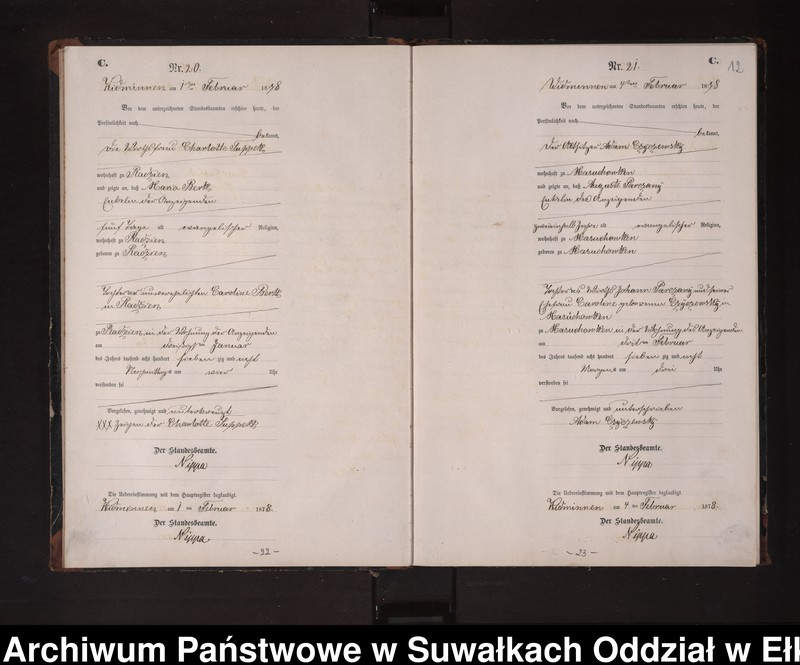 C.
Nr. 20.
Widminnen am 1ten Februar 1878
Vor dem unterzeichneten Standesbeamten erschien heute, der
Persönlichkeit nach
bekannt,
die Wirthsfrau Charlotte Suppek
wohnhaft zu Radzien
und zeigte an, daß Maria Bertt
Enkelin der Anzeigenden
fünf Tage alt evangelischer Religion,
wohnhaft zu Radzien
geboren zu Radzien
Tochter der unverehelichten Caroline Bertt
in Radzien
zu Radzien in der Wohnung der Anzeigenden
am dreißigsten Januar
des Jahres tausend acht hundert sieben zig und acht
Nachmittags um vier Uhr
verstorben sei
Vorgelesen, genehmigt und unterkreuzt
XXX Zeichen der Charlotte Suppek
Der Standesbeamte.
Nippa
Die Uebereinstimmung mit dem Hauptregister beglaubigt.
Widminnen am 1 ten Februar 1878.
Der Standesbeamte.
Nippa
- 22 -
C. 12
Nr. 21.
Widminnen am 4ten Februar 1878
Vor dem unterzeichneten Standesbeamten erschien heute, der
Persönlichkeit nach
bekannt,
der Altsitzer Adam Czyczewsky
wohnhaft zu Masuchowken
und zeigte an, daß Auguste Parczany
Enkelin des Anzeigenden
Jahre evangelischer Religion,
wohnhaft zu Masuchowken
geboren zu Masuchowken
Tochter des Wirths Johann Parczany und seiner
Ehefrau Caroline geborenen Czyczewsky in
Masuchowken
zu Masuchowken in der Wohnung des Anzeigenden
am dritten Februar
des Jahres tausend acht hundert sieben zig und acht
Morgens um drei Uhr
verstorben sei
Vorgelesen, genehmigt und unterschrieben
Adam Czyczewsky
Der Standesbeamte.
Nippa
Die Uebereinstimmung mit dem Hauptregister beglaubigt.
Widminnen am 4 ten Februar 1878.
Der Standesbeamte.
Nippa
- 23 -
Archiwum Państwowe w Suwałkach Oddział w Ełk